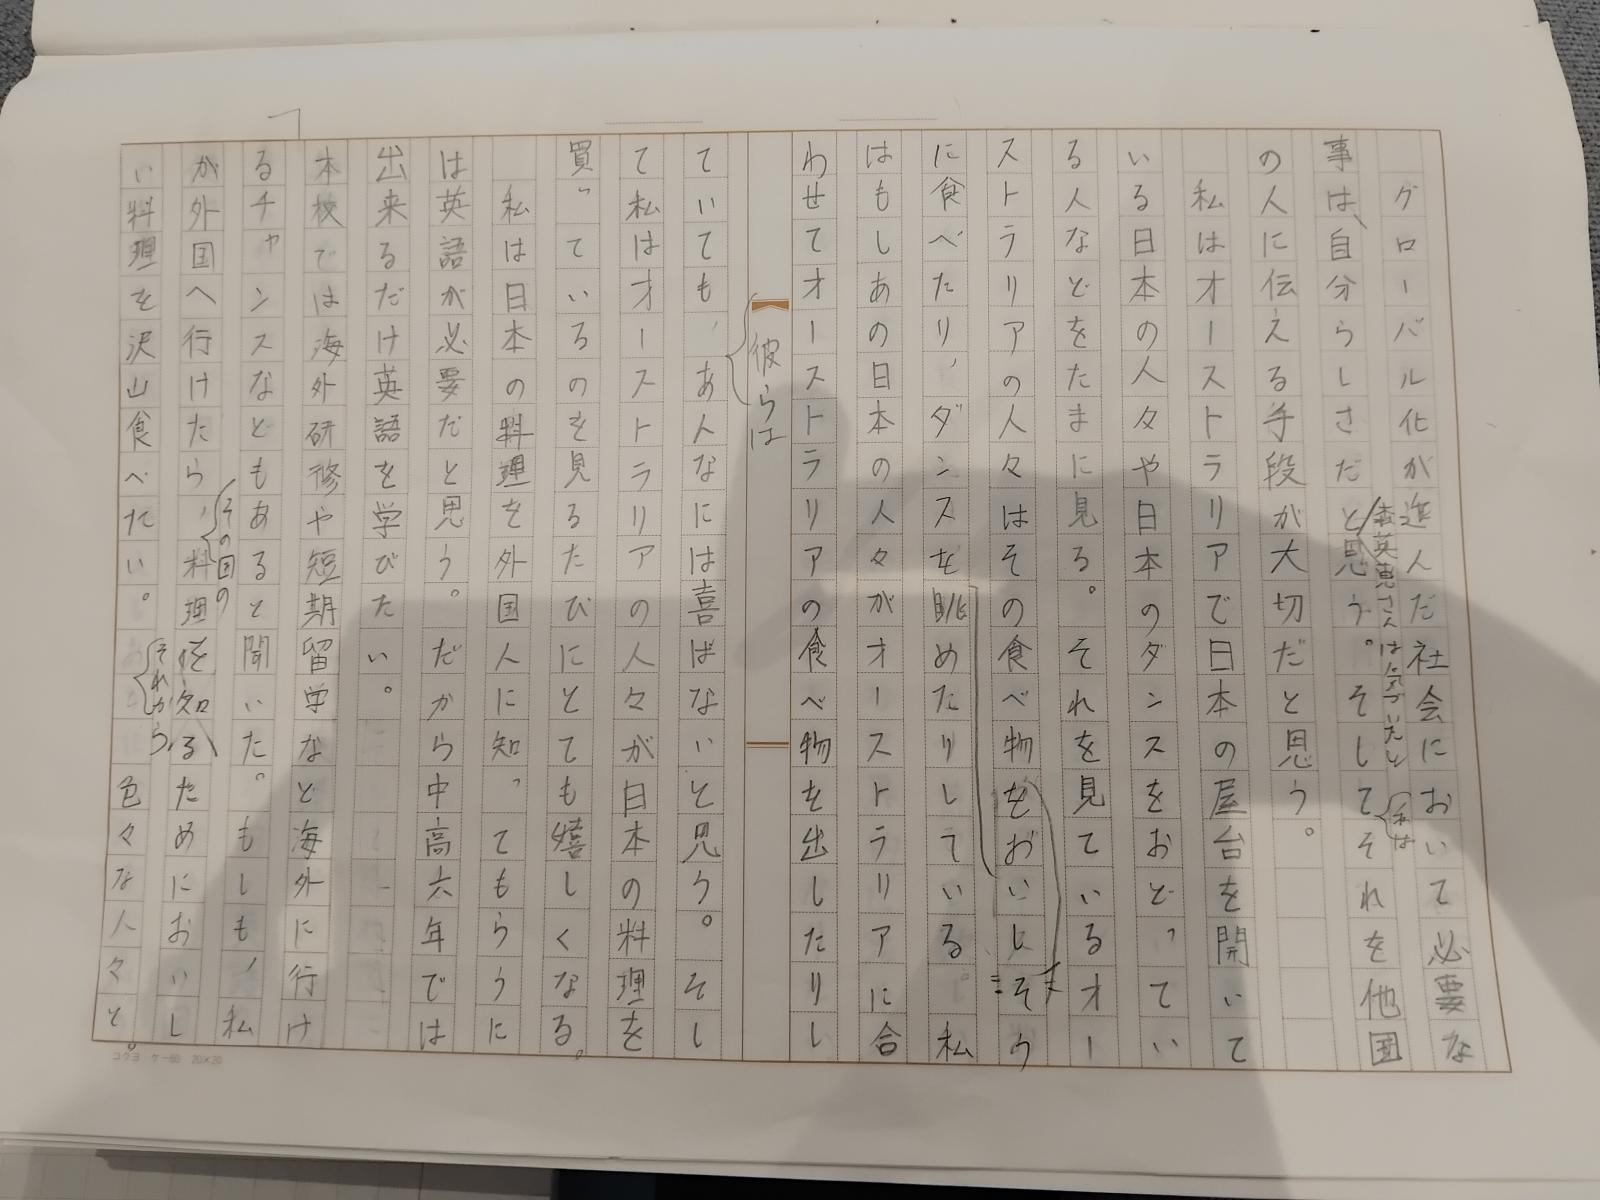 グローバル化が進んだ社会において必要な
事は、自分らしさだと思う。そしてそれを他国
森英恵さんは気づいたと
私は
の人に伝える手段が大切だと思う。
私はオーストラリアで日本の屋台を開いて
いる日本の人々や日本のダンスをおどってい
る人などをたまに見る。それを見ているオー
ストラリアの人々はその食べ物をおいしそう
に食べたり、ダンスを眺めたりしている。私
はもしあの日本の人々がオーストラリアに合
わせてオーストラリアの食べ物を出したりし
彼らは
ていても、あんなには喜ばないと思う。そし
て私はオーストラリアの人々が日本の料理を
買っているのを見るたびにとても嬉しくなる。
私は日本の料理を外国人に知ってもらうに
は英語が必要だと思う。だから中高六年では
出来るだけ英語を学びたい。
本校では海外研修や短期留学など海外に行け
るチャンスなどもあると聞いた。もしも、私
が外国へ行けたら、料理を知るためにおいし
その国の
い料理を沢山食べたい。色々な人々と
それから
コクヨ ケー60 20×20